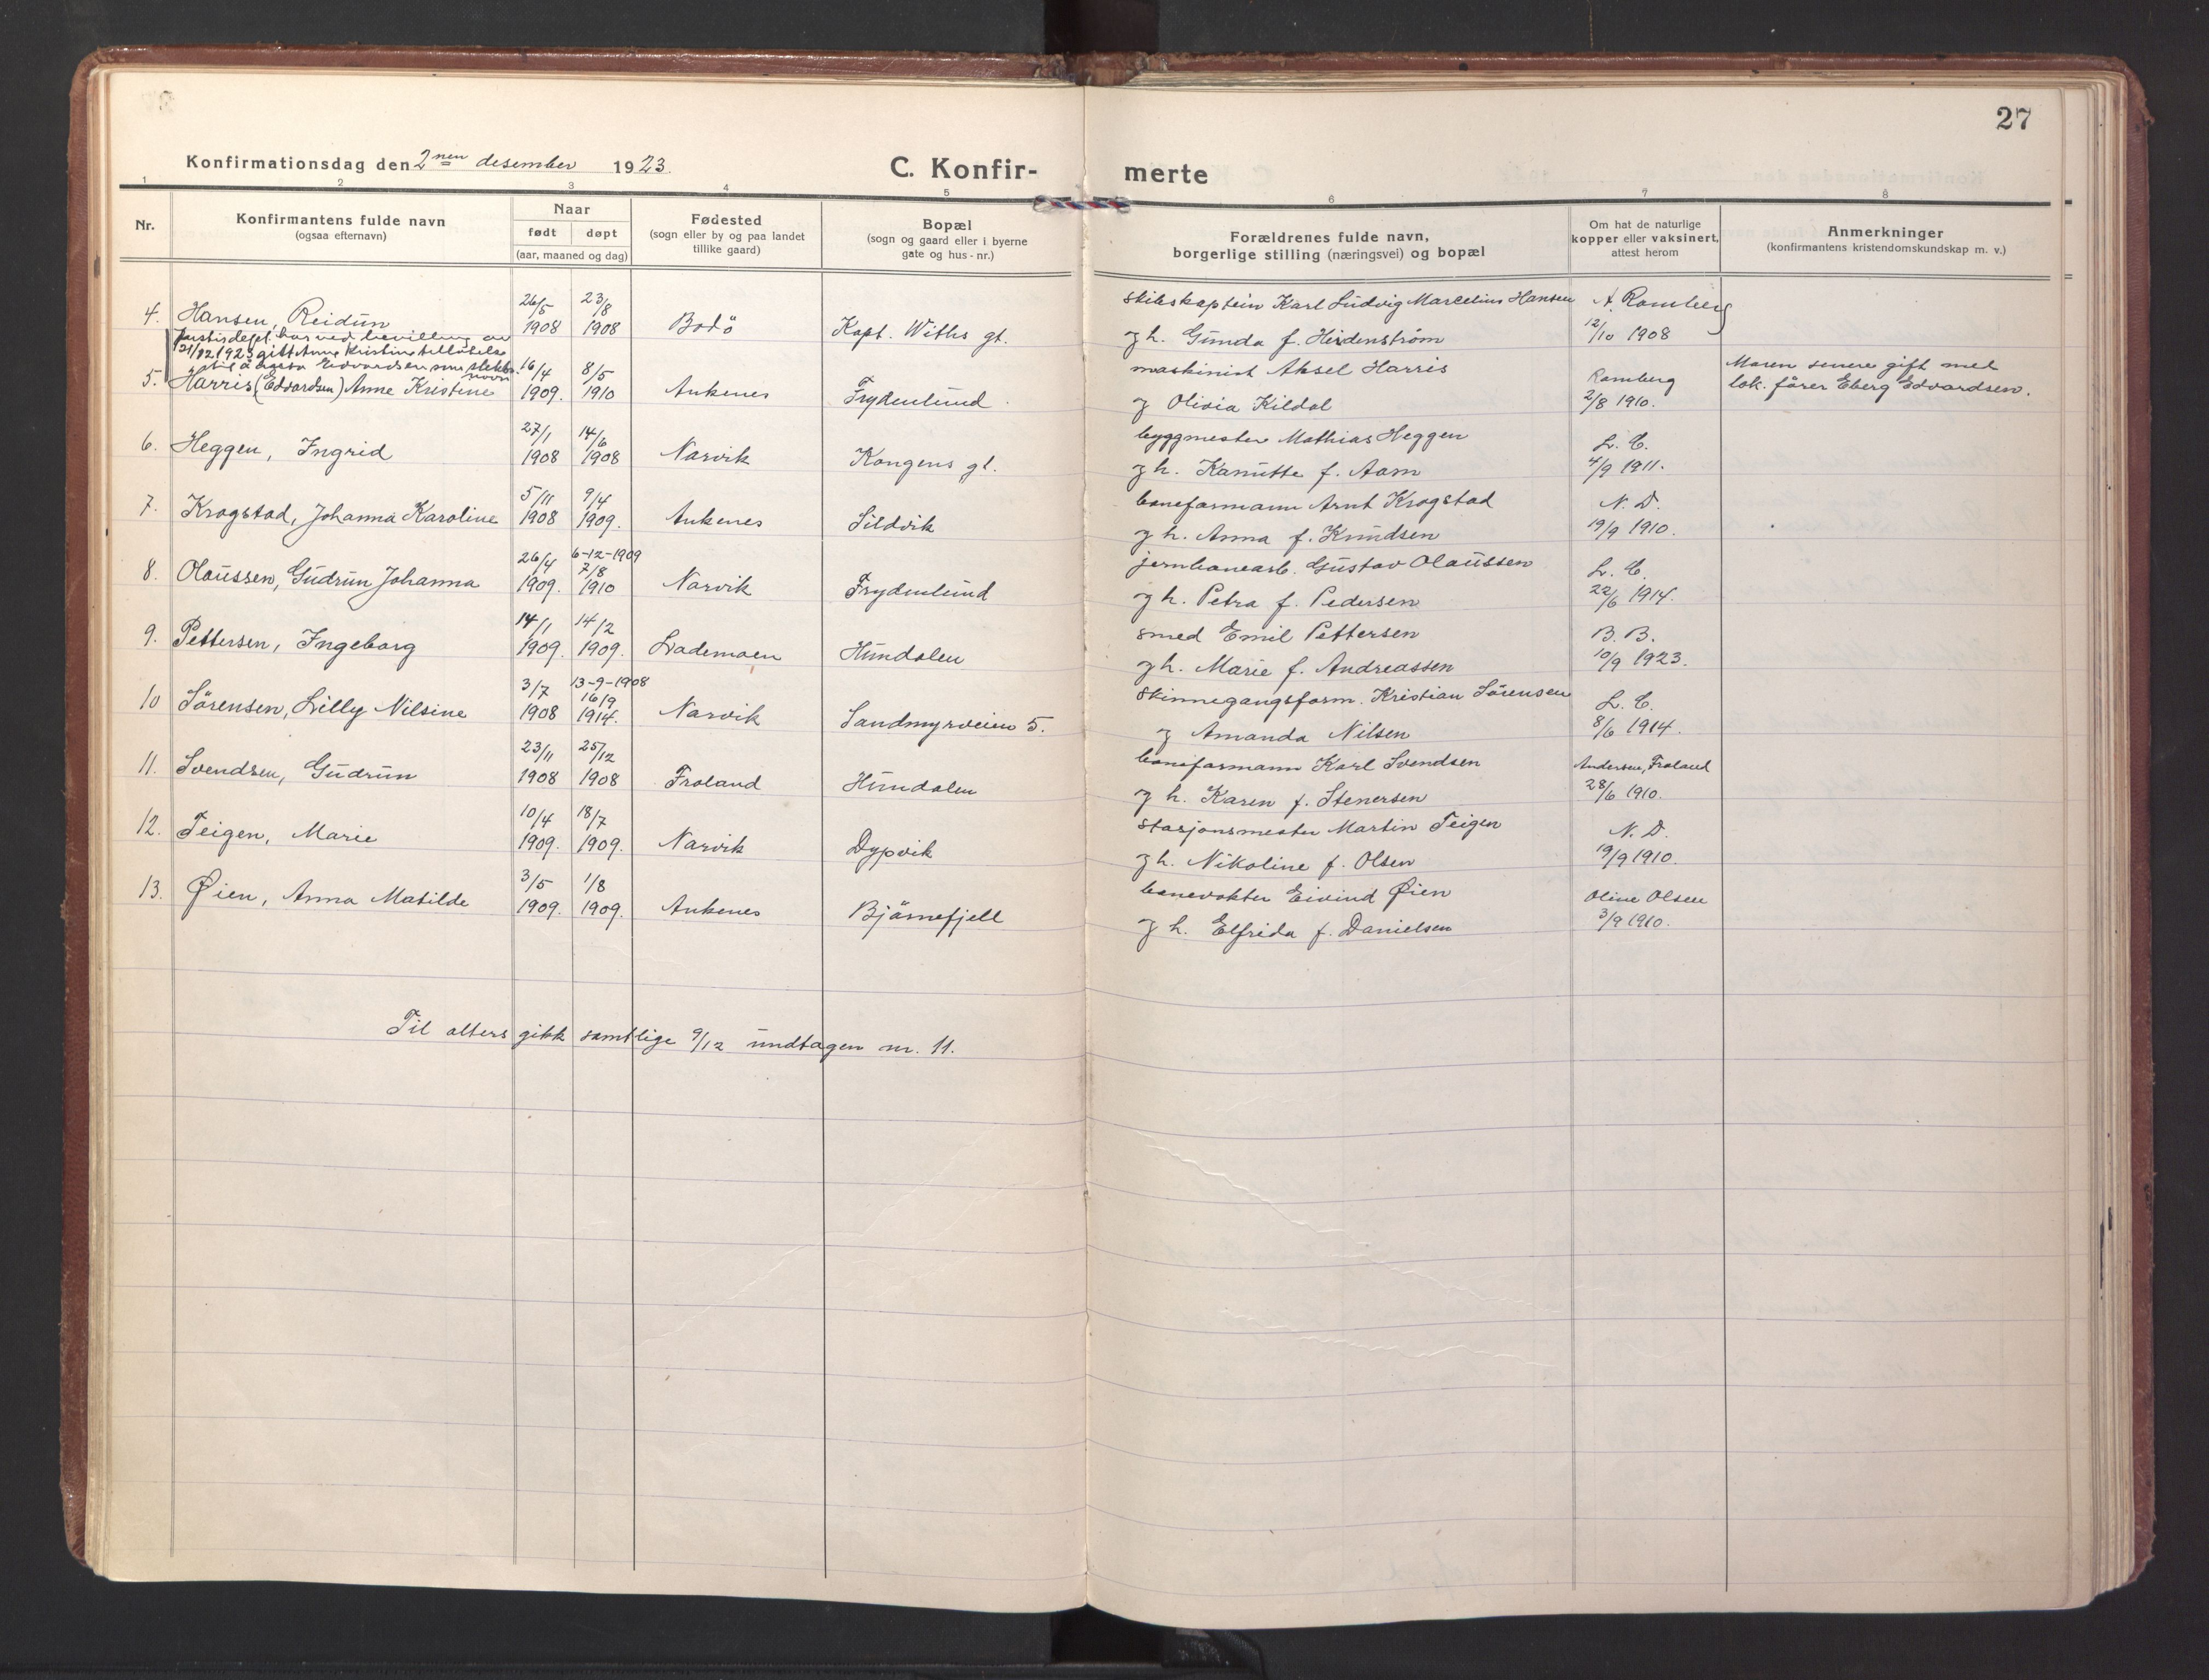 27
Konfirmationsdag den 2nen desember 1923.
C. Konfir- merte
1 2 3 4 5 6 7 8
Nr.
Konfirmantens fulde navn
(ogsaa efternavn)
Naar
født døpt
(aar, maaned og dag)
Fødested
(sogn eller by og paa landet
tillike gaard)
Bopæl
(sogn og gaard eller i byerne
gate og hus-nr.)
Forældrenes fulde navn,
borgerlige stilling (næringsvei) og bopæl
Om hat de naturlige
kopper eller vaksinert,
attest herom
Anmerkninger
(konfirmantens kristendomskundskap m. v.)
4. Hansen, Reidun 26/5 1908 23/8 1908 Bodö Kapt. Withs gt. skibskaptein Karl Ludvig Marcelius Hansen
og h. Gunda f. Heidenström A. Ramberg 12/10 1908
Justisdept. har ved bevilling av
21/12 1923 gitt Anne Kristine tilladelse
til å Edvardsen som slekts-
navn
5. Harris (Edvardsen) Anne Kristine 16/4 1909. 8/5 1910 Ankenes Frydenlund. maskinist Aksel Harris
og Olivia Kildal Ramberg 2/8 1910. Moren senere gift med
lok. förer Eberg Edvardsen.
6. Heggen, Ingrid 27/1 1908 14/6 1908 Narvik Kongens gt. byggmester Mathias Heggen
og h. Kanutte f. Aam L. C. 4/9 1911.
7. Krogstad, Johanna Karoline 5/11 1908 9/4 1909. Ankenes Sildvik baneformann Arnt Krogstad
og h. Anna f. Knudsen N. D. 19/9 1910.
8. Olaussen, Gudrun Johanna 26/4 1909. 6-12-1909 7/8 1910 Narvik Frydenlund jernbanearb. Gustav Olaussen
og h. Petra f. Pedersen L. C. 22/6 1914.
9. Pettersen, Ingeborg 14/1 1909. 14/2 1909. Lademoen Hundalen smed Emil Pettersen
og h. Marie f. Andreassen B. B. 10/9 1923.
10 Sörensen, Lilly Nilsine 3/7 1908 13-9-1908 16/9 1914. Narvik Sandmyrveien 5. skinnegangsform. Kristian Sörensen
og Amanda Nilsen L. C. 8/6 1914.
11. Svendsen, Gudrun 23/11 1908 25/12 1908 Froland Hundalen baneformann Karl Svendsen
og h. Karen f. Stenersen Andersen, Froland 28/6 1910.
12. Teigen, Marie 10/4 1909. 18/7 1909. Narvik Dypvik stasjonsmester Martin Teigen
og h. Nikoline f. Olsen N. D. 19/9 1910.
13. Øien, Anna Matilde 3/5 1909. 1/8 1909. Ankenes Bjørnefjell banevokter Eivind Øien
og h. Elfrida f. Danielsen Oline Olsen 3/9 1910.
Til alters gikk samtlige 9/12 undtagen nr. 11.